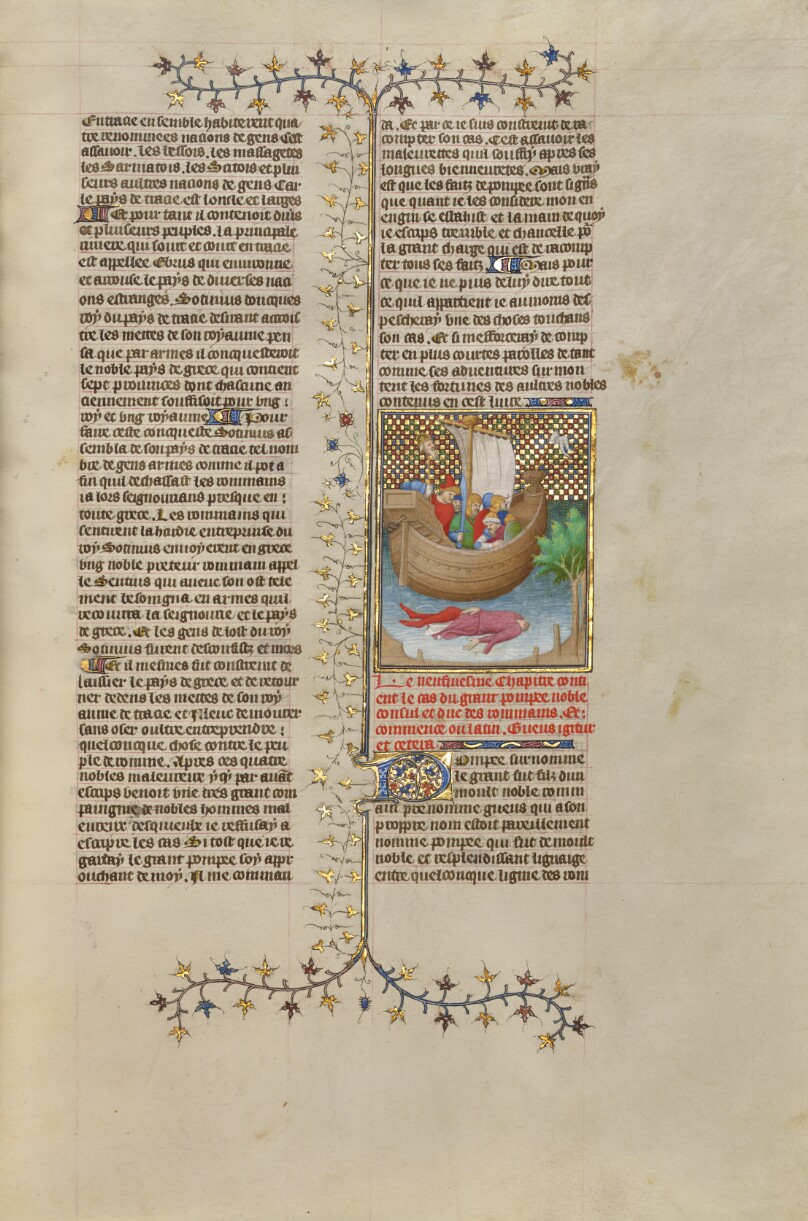 En trace ensemble habiterent qua
tre renommees nacions de gens Cest
assauoir. les bessois. les massagetes
les Sarmatois. les Satois et plu
seurs aultres nacions de gens Car
le pays de trace est lonc et larges
Et pour tant il contenoit diuers
et pluseurs peuples. la principale
riuiere qui sourt et court en trace
est appellee Ebrus qui enuironne
et arrouse le pays de diuerses naci
ons estranges. Sotimus doncques
roy du pays de trace desirant accrois
tre les mettes de son royaume pen
sa que par armes il concquesteroit
le noble pays de grece qui contient
sept prouinces dont chascune an
ciennement souffisoit pour vng
roy et vng royaume Pour
faire ceste conqueste Sotimus as
sembla de son pays de trace tel nom
bre de gens armes comme il pot a
fin quil dechassast les rommains
ia lors seignourians presque en
toute grece. Les rommains qui
sentirent la hardie entreprinse du
roy Sotimus enuoyerent en grece
vng noble preteur rommain appel
le Sentius qui auec son ost tele
ment besoigna en armes quil
recouura la seignourie et le pays
de grece. Et les gens de lost du roy
Sotimus furent desconfis et mors
Et il mesmes fut constraint de
laissier le pays de grece et de retour
ner dedens les mettes de son roy
aume de trace et illeuc demourer
sans oser oultre entreprendre
quelconque chose contre le peu
ple de romme. Apres ces quatre
nobles maleureux yqy par auant
escrips venoit vne tres grant com
paignie de nobles hommes mal
eureux desquieulx ie reffusay a
escripre les cas Si tost que ie re
garday le grant pompee soy appr
ouchant de moy. Il me comman
da. Et par ce ie suis constraint de ra
compter son cas. Cest assauoir les
maleurettes quil souffry apres ses
longues bieneuretes. Mais vray
est que les faitz de pompee sont si grans
que quant ie les considere mon en
engin se esbahist et la main de quoy
ie escrips tremble et chancelle pour
la grant charge qui est de racomp
ter tous ses faitz Mais pour
ce que ie ne puis de luy dire tout
ce quil appartient ie aumoins des
pescheray vne des choses touchans
son cas. Et si mefforceray de comp
ter en plus courtes parolles de tant
comme ses aduentures surmon
tent les fortunes des aultres nobles
contenus en cest liure
Le neufuiesme Chapitre conti
ent le cas du grant pompee noble
consul et duc des rommains. Et
commence ou latin. Gneus igitur
et cetera
Pompee surnomme
le grant fut filz dun
moult noble romm
ain prenomme gneus qui a son
propre nom estoit pareillement
nomme pompee qui fut de moult
noble et resplendissant lignaige
entre quelconque ligne des rom